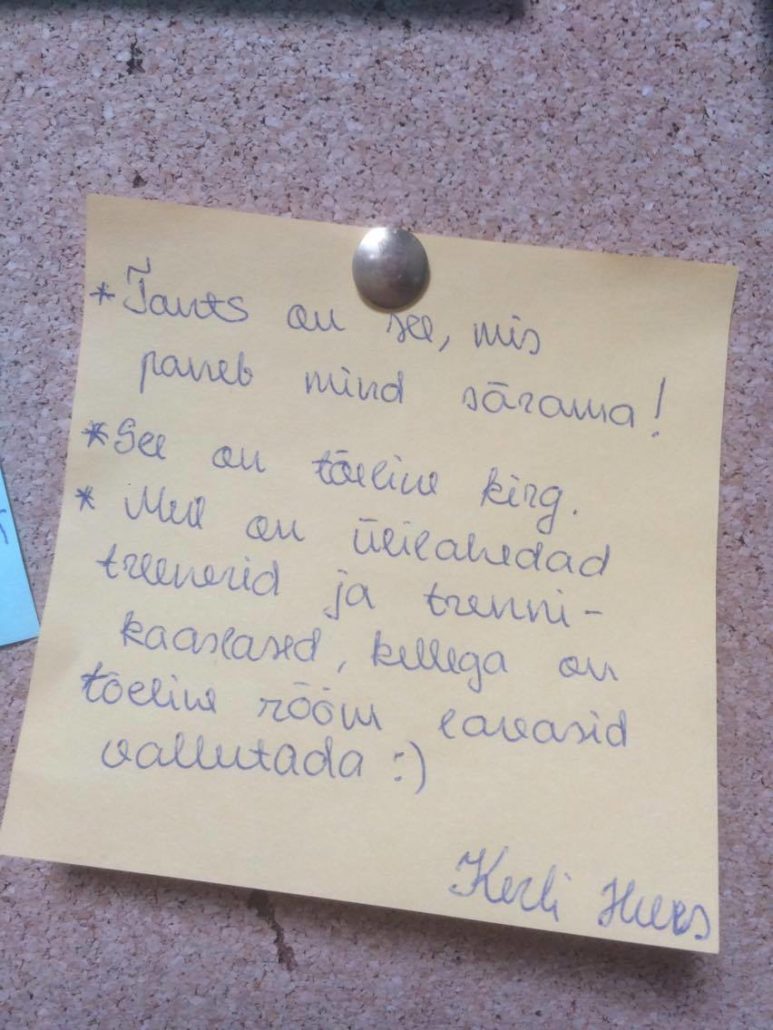 *Tants on see, mis
paneb mind särama!
*See on tõeline kirg.
* Meil on ülilahedad
treenerid ja trenni-
kaaslased, kellega on
tõeline rõõm lavasid
vallutada :)
Kerli